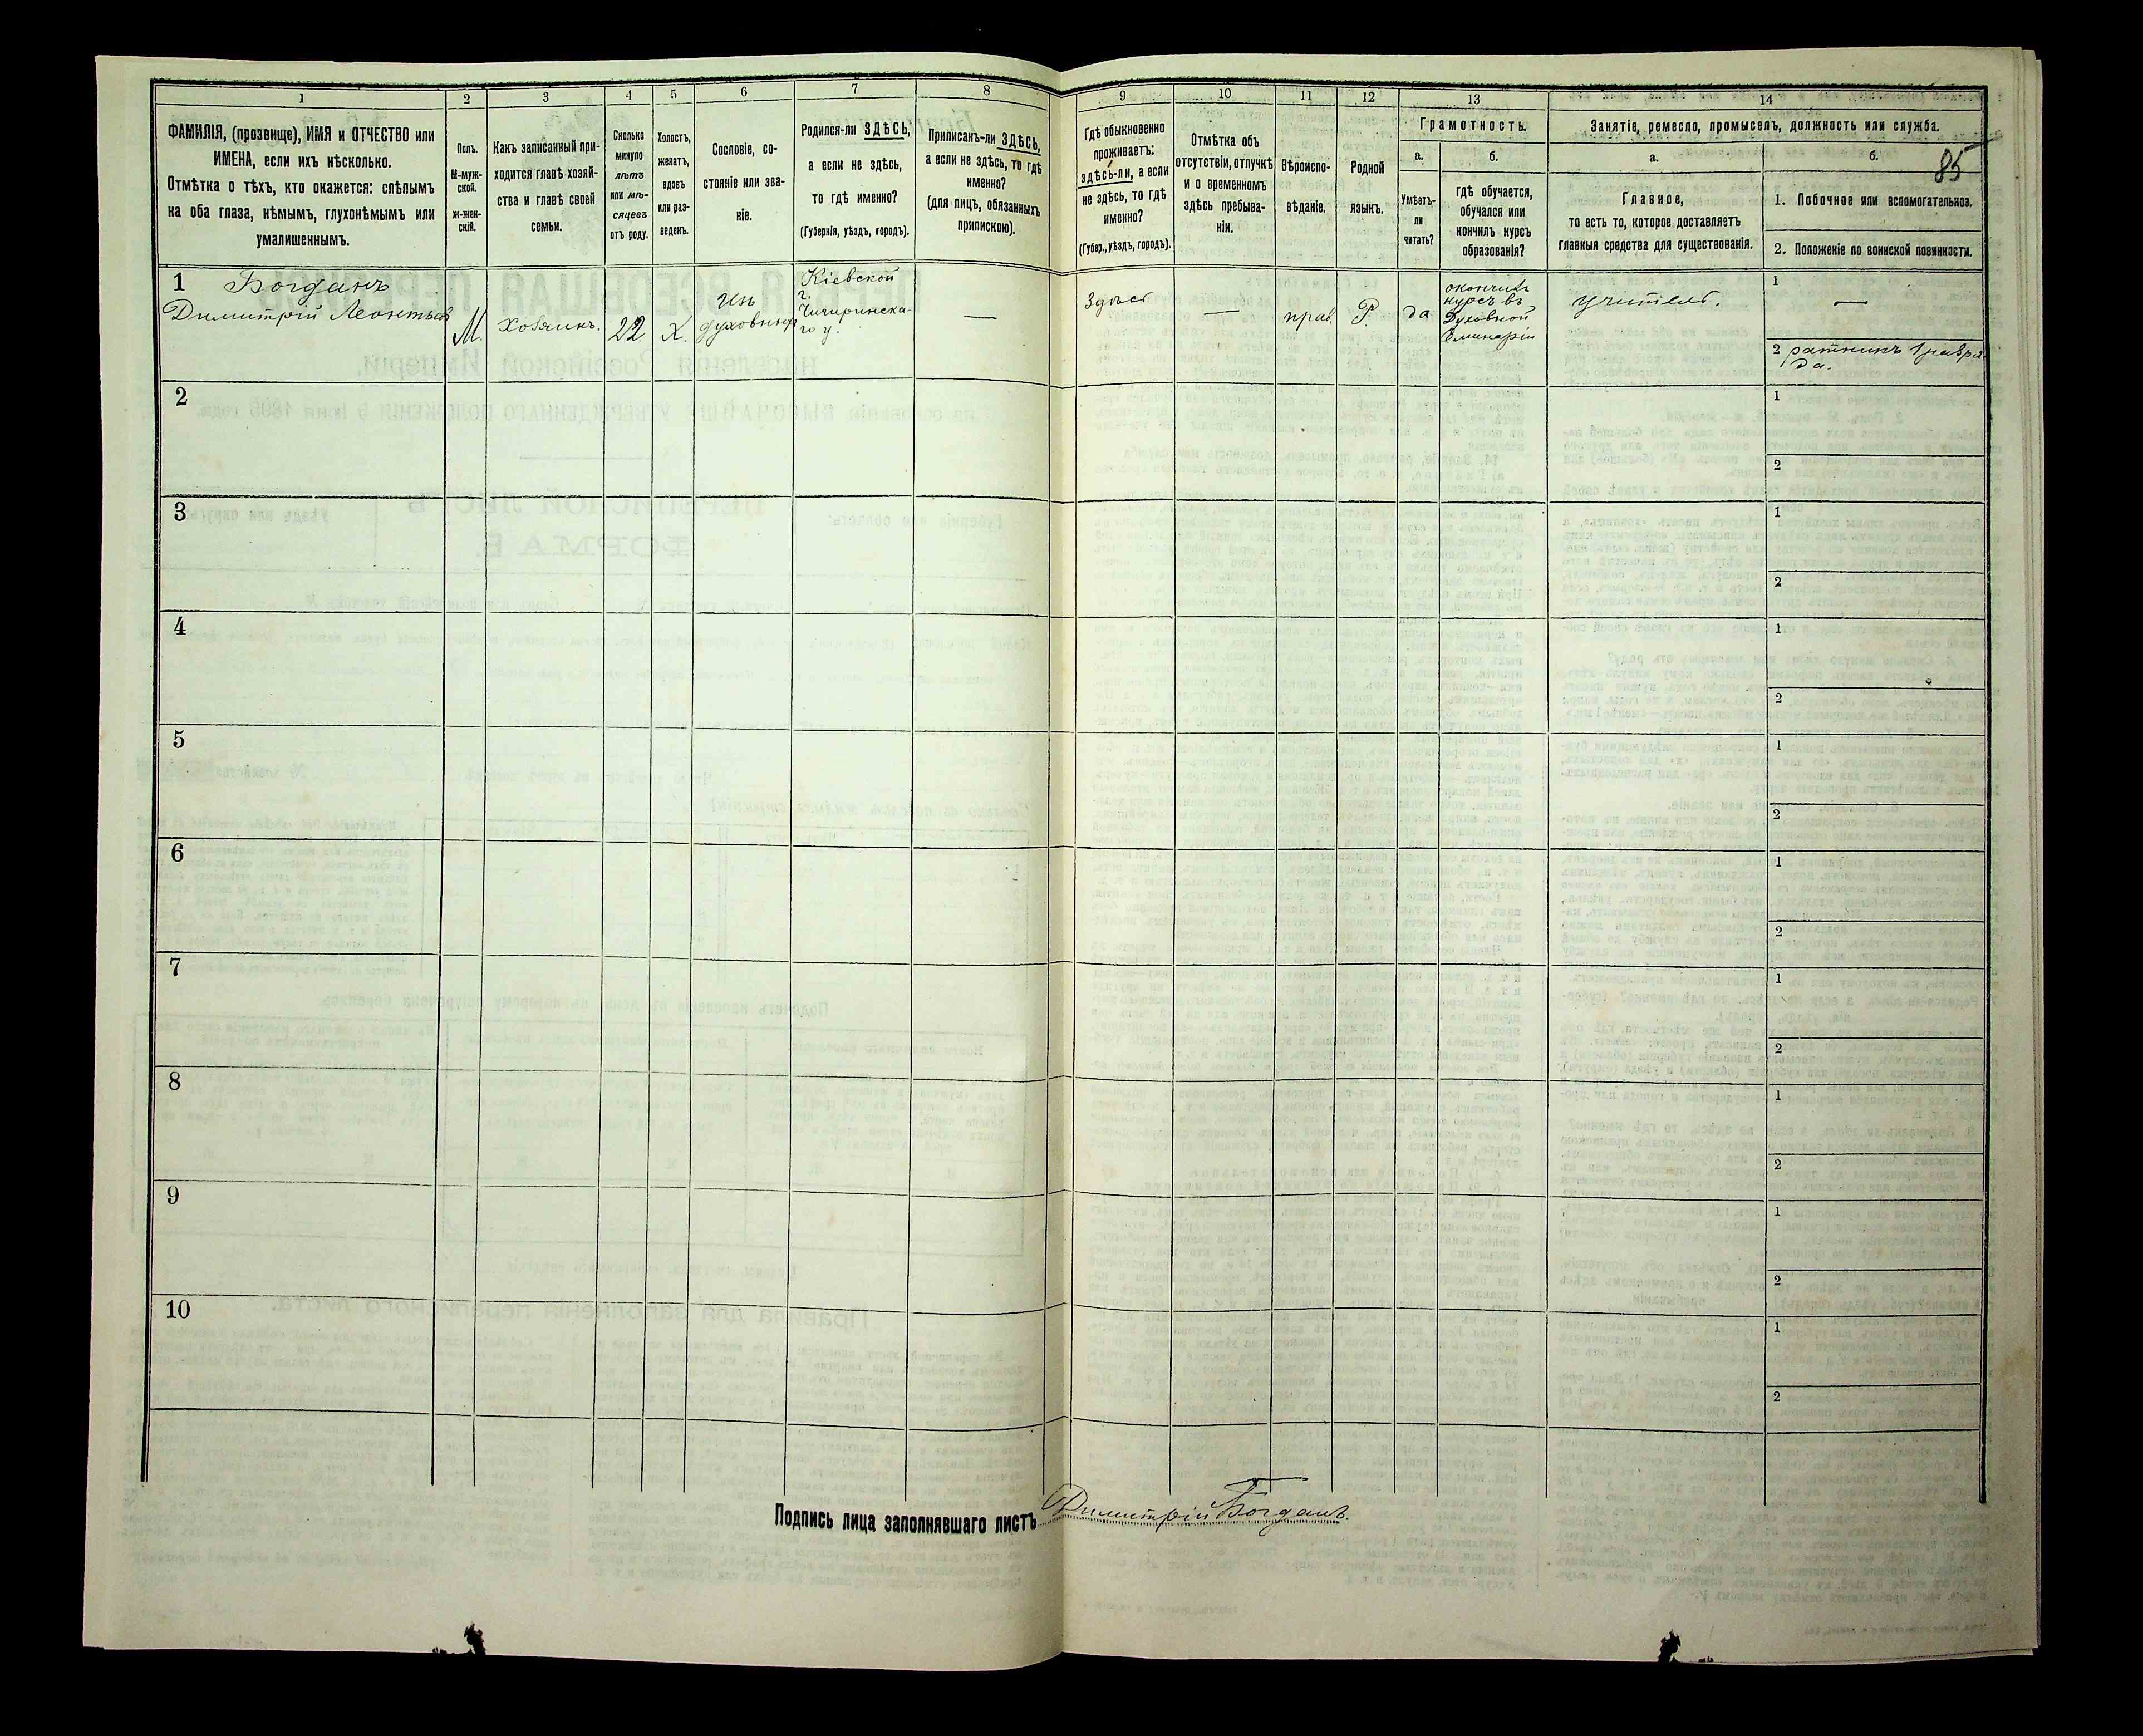 1
2
3
4
5
6
7
8
9
10
11
12
13
14
ФАМИЛІЯ, (прозвище), ИМЯ и ОТЧЕСТВО или
ИМЕНА, если ихъ нѣсколько.
Отмѣтка о тѣхъ, кто окажется: слѣпымъ
на оба глаза, нѣмымъ, глухонѣмымъ или
умалишеннымъ.
Полъ.
М-муж-
ской.
ж-жен-
скій.
Какъ записанный при-
ходится главѣ хозяй-
ства и главѣ своей
семьи.
Сколько
минуло
лѣтъ
или мѣ-
сяцевъ
отъ роду.
Холостъ,
женатъ,
вдовъ
или раз-
веденъ.
Сословіе, со-
стояніе или зва-
ніе.
Родился-ли ЗДѢСЬ,
а если не здѣсь,
то гдѣ именно?
(Губернія, уѣздъ, городъ).
Приписанъ-ли ЗДѢСЬ,
а если не здѣсь, то гдѣ
именно?
(для лицъ, обязанныхъ
припискою).
Гдѣ обыкновенно
проживаетъ:
здѣсь-ли, а если
не здѣсь, то гдѣ
именно?
(Губер., уѣздъ, городъ).
Отмѣтка объ
отсутствіи, отлучкѣ
и о временномъ
здѣсь пребыва-
ніи.
Вѣроиспо-
вѣданіе.
Родной
языкъ.
Грамотность.
а.
Умѣетъ-
ли
читать?
б.
гдѣ обучается,
обучался или
кончилъ курсъ
образованія?
Занятіе, ремесло, промыселъ, должность или служба.
а.
Главное,
то есть то, которое доставляетъ
главныя средства для существованія.
б.
85
1. Побочное или вспомогательное.
2. Положеніе по воинской повинности.
1
Богданъ
Димитрій Леонтьев
М.
хозяинъ.
22
Х.
духовных
Кіевской
г.
Чигиринска-
го у.
—
Здѣсь
—
прав.
Р.
да
окончилъ
курсъ въ
Духовной
Семинаріи
учитель.
1
—
2 ратникъ 1 разря-
да.
2
1
2
3
1
2
4
1
2
5
1
2
6
1
2
7
1
2
8
1
2
9
1
2
10
1
2
Подпись лица заполнявшаго листъ Димитрій Богданъ.